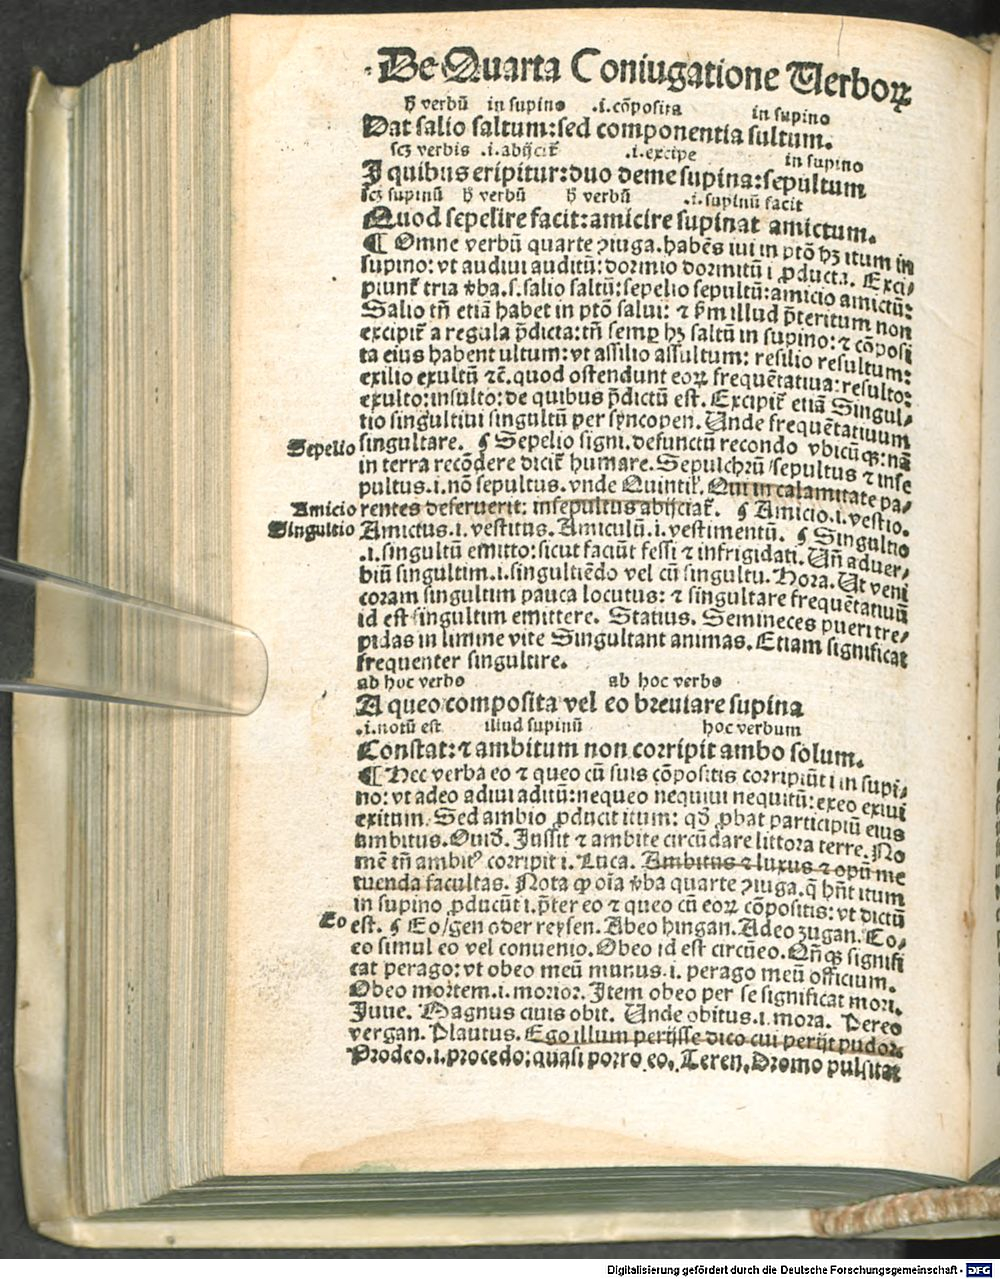 De Quarta Coniugatione Verboꝝ
h̄ verbū in supino .i. cōposita in supino
Dat salio saltum: sed componentia sultum.
scꝫ verbis .i. abijcit᷑ .i. excipe in supino
I quibus eripitur: duo deme supina: sepultum
scꝫ supinū h̄ verbū h̄ verbū .i. supinū facit
Quod sepelire facit: amicire supinat amictum.
¶ Omne verbū quarte ꝯiuga. habēs iui in ptō hꝫ itum in
supino: vt audiui auditū: dormio dormitū i ꝓducta. Exci⸗
piunt᷑ tria v̄ba. s. salio saltū: sepelio sepultū: amicio amictū:
Salio tn̄ etiā habet in ptō salui: ⁊ p̄m illud p̄teritum non
excipit᷑ a regula p̄dicta: tn̄ semꝑ hꝫ saltū in supino: ⁊ cōposi
ta eius habent ultum: vt assilio assultum: resilio resultum:
exilio exultū ⁊c̄. quod ostendunt eoꝝ frequētatiua: resulto:
exulto: insulto: de quibus p̄dictū est. Excipit᷑ etiā Singul⸗
tio singultiui singultū per syncopen. Unde frequētatiuum
Sepelio singultare. ¶ Sepelio signi. defunctū recondo vbicūqꝫ: nā
in terra recōdere dicit᷑ humare. Sepulchrū / sepultus ⁊ inse
pultus .i. nō sepultus. vnde Quintil᷑. Qui in calamitate pa⸗
Amicio rentes deseruerit: insepultus abijciat᷑. ¶ Amicio .i. vestio.
Singultio Amictus .i. vestitus. Amiculū .i. vestimentū. ¶ Singultio
.i. singultū emitto: sicut faciūt fessi ⁊ infrigidati. Un̄ aduer⸗
biū singultim .i. singultiēdo vel cū singultu. Hora. Ut veni
coram singultim pauca locutus: ⁊ singultare frequētatiuū
id est singultum emittere. Statius. Semineces pueri tre⸗
pidas in limine vite Singultant animas. Etiam significat
frequenter singultire.
ab hoc verbo ab hoc verbo
A queo composita vel eo breuiare supina
.i. notū est illud supinū hoc verbum
Constat: ⁊ ambitum non corripit ambo solum.
¶ Hec verba eo ⁊ queo cū suis cōpositis corripiūt i in supi⸗
no: vt adeo adiui aditū: nequeo nequiui nequitū: exeo exiui
exitum. Sed ambio ꝓducit itum: qđ ꝓbat participiū eius
ambitus. Ouid. Jussit ⁊ ambite circūdare littora terre. No
mē tn̄ ambitꝰ corripit i. Luca. Ambitus ⁊ luxus ⁊ opū me
tuenda facultas. Nota ꝙ oīa v̄ba quarte ꝯiuga. q̄ hn̄t itum
in supino ꝓducūt i. p̄ter eo ⁊ queo cū eoꝝ cōpositis: vt dictū
Eo est. ¶ Eo / gen oder reysen. Abeo hingan. Adeo zugan. Co⸗
eo simul eo vel conuenio. Obeo id est circūeo. Qn̄qꝫ signifi
cat perago: vt obeo meū munus .i. perago meū officium.
Obeo mortem .i. morior. Item obeo per se significat mori.
Juue. Magnus ciuis obit. Unde obitus .i. mora. Pereo
vergan. Plautus. Ego illum perijsse dico cui perijt pudor.
Prodeo .i. procedo: quasi porro eo. Teren. Dromo pulsita⸗
Digitalisierung gefördert durch die Deutsche Forschungsgemeinschaft - DFG